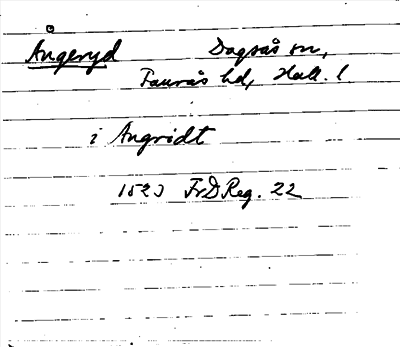 Ångeryd Dagsås sn,
Faurås hd, Hall. l
i Angridt
1523 FrDReg. 22